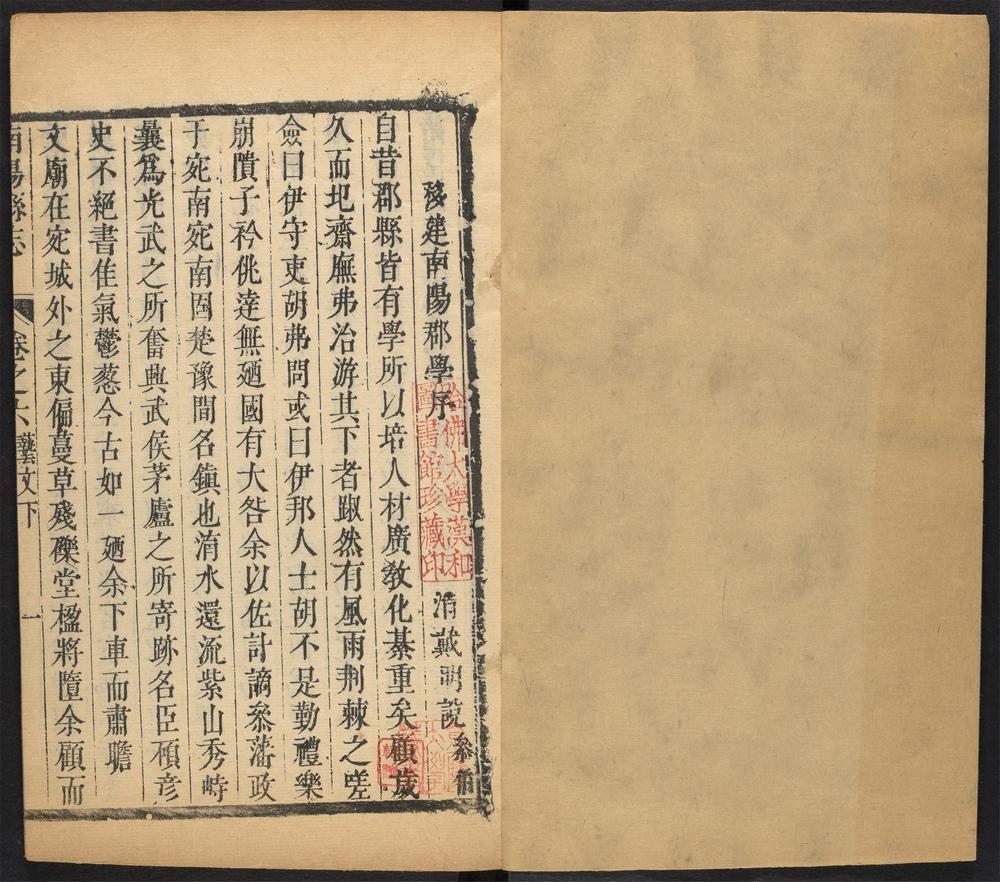 移建南陽郡學序
清戴明說 叅銜
自昔郡縣皆有學所以培人材廣敎化綦重矣顧歲
久而圮齋廡弗治游其下者踧然有風雨荆棘之嗟
僉曰伊守吏胡弗問或曰伊邦人士胡不是勤禮樂
崩隤子衿佻達無廼國有大咎余以佐計謫叅藩政
于宛南宛南固楚豫間名鎮也淯水還流紫山秀峙
曩爲光武之所奮興武侯茅廬之所寄跡名臣碩彥
史不絕書佳氣鬱葱今古如一廼余下車而肅瞻
文廟在宛城外之東偏蔓草殘礫堂楹將隳余顧而
南陽縣志 卷之六藝文下 一
哈佛大學漢和圖書館珍藏印